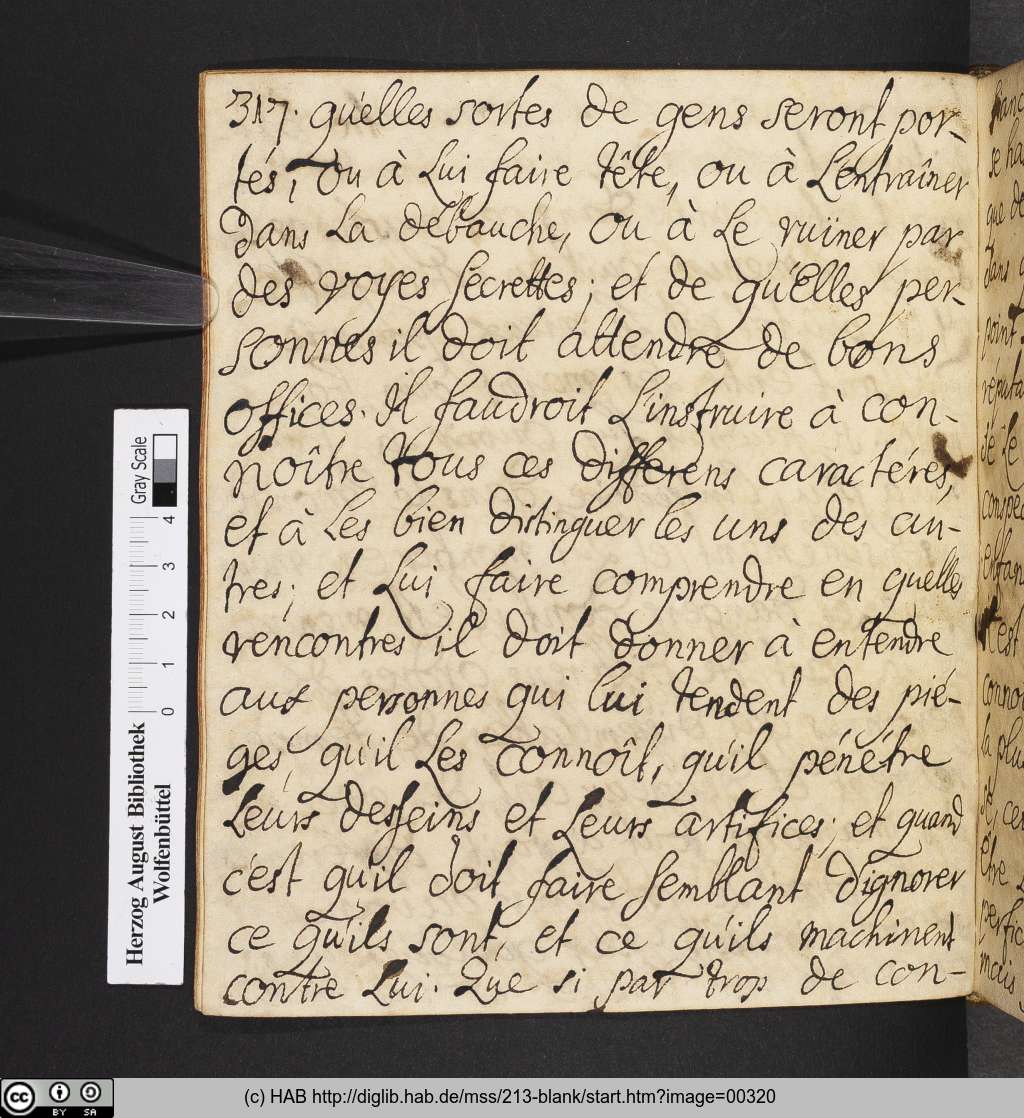 317. qu'elles sortes de gens seront por-
tés, ou à Lui faire tête, ou à L'entraîner
dans La débauche, ou à Le ruïner par
des voyes sécrettes; et de qu'Elles per-
sonnes il doit attendre de bons
offices. Il faudroit L'instruire à con-
noître tous ces differens caractéres,
et à Les bien distinguer les uns des au-
tres; et Lui faire comprendre en quelles
rencontres il doit donner à entendre
aux personnes qui lui tendent des pié-
ges, qu'il Les connoît, qu'il pénétre
Leurs desseins et Leurs artifices; et quand
c'est qu'il doit faire semblant d'ignorer
ce qu'ils sont, et ce qu'ils machinent
contre Lui. Que si par trop de con-
se
que de
dans
point
Le
c'est
la plu
être
mais
Gray Scale
0 1 2 3 4
Herzog August Bibliothek
Wolfenbüttel
cc BY SA
(c) HAB http://diglib.hab.de/mss/213-blank/start.htm?image=00320